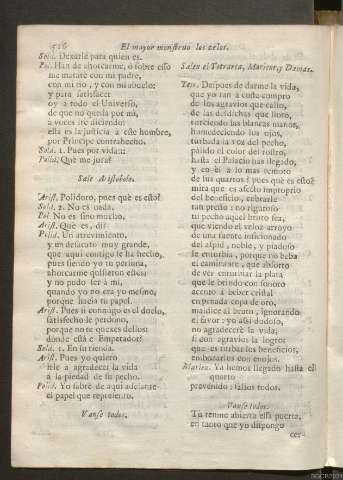 526
El mayor monstruo los zelos.
Sold. Dexarle para quien es.
Pol. Han de ahorcarme, ò sobre esso
me mataré con mi padre,
con mi tio, y con mi abuelo:
y para satisfacer
oy à todo el Universo,
de que no queda por mi,
à voces iré diciendo:
ella es la justicia à este hombre,
por Principe contrahecho.
Sold. 1. Pues por vida::
Polid. Què me jura?
Sale Aristobolo.
Arist. Polidoro, pues què es esto?
Sold. 2. No es nada.
Pol. No es sino mucho.
Arist. Què es, di?
Polid. Un atrevimiento,
y un desacato muy grande,
que aqui contigo se ha hecho,
pues siendo yo tu persona,
ahorcarme quisieron estos;
y no pudo ser à mi,
quando yo no era yo mesmo,
porque hacia tu papel.
Arist. Pues si conmigo es el duelo,
satisfecho le perdono,
porque no te quexes dellos:
dònde està el Emperador?
Sold. 1. En su tienda.
Arist. Pues yo quiero
irle à agradecer la vida
à la piedad de su pecho.
Polid. Yo sabrè de aqui adelante
el papel que represento.
Vanse todos.
Salen el Tetrarca, Mariene, y Damas.
Tetr. Despues de darme la vida,
que yo tan à costa compro
de los agravios que callo,
de las desdichas que lloro,
torciendo las blancas manos,
humedeciendo los ojos,
turbada la voz del pecho,
palido el color del rostro,
hasta el Palacio has llegado,
y en èl à lo mas remoto
de tus quartos? pues què es esto?
mira que es afecto improprio
del beneficio, cobrarle
tan presto: no riguroso
tu pecho aquel bruto sea,
que viendo el veloz arroyo
de una fuente inficionado
del aspid, noble, y piadoso
le enturbia, porque no beba
el caminante, que absorto
de ver enturbiar la plata
que le brindò con sonoro
acento à beber cristal
en penada copa de oro,
maldice al bruto, ignorando
el favor: yo assi dudoso,
no agradecerè la vida,
si con agravios la logro:
que es turbar los beneficios,
embozarlos con enojos.
Marien. Ya hemos llegado hasta el
quarto
prevenido: salios todos.
Vanse todos.
Tu retirate abierta essa puerta,
en tanto que yo dispongo
cer-